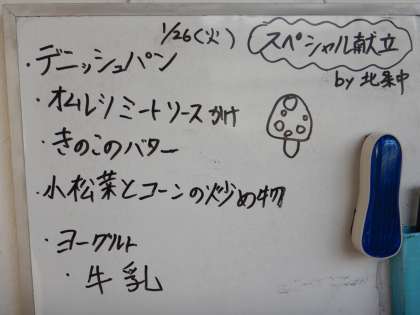 1/26(火)
スペシャル献立
by 北条中
・デニッシュパン
・オムレツミートソースかけ
・きのこのバター
・小松菜とコーンの炒め物
・ヨーグルト
・牛乳